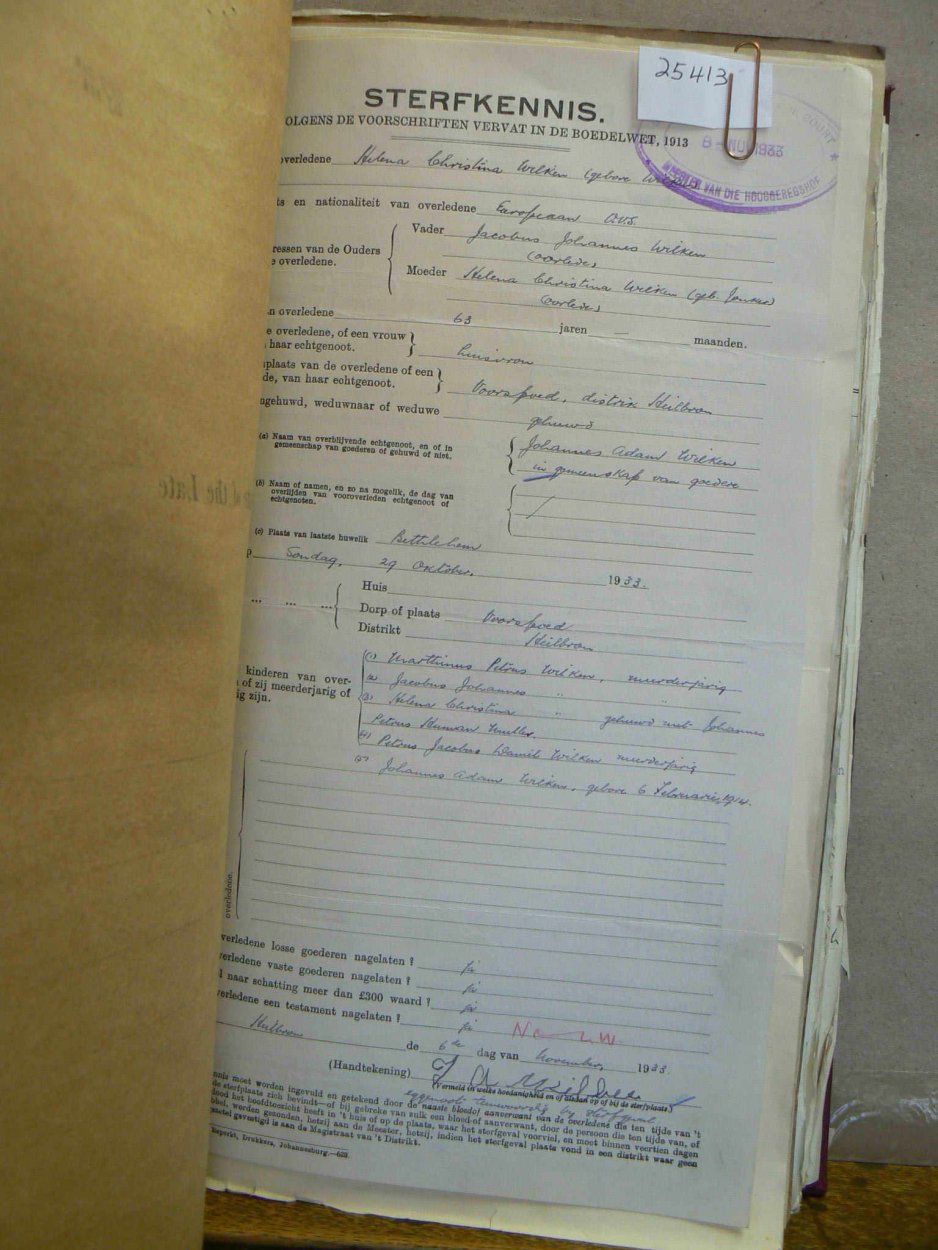 25413
STERFKENNIS.
OLGENS DE VOORSCHRIFTEN VERVAT IN DE BOEDELWET, 1913
8 - NOV 1933
VAN DIE HOOGGEREGSHOF
overledene Helena Christina Wilken (gebore Wilken)
ts en nationaliteit van overledene Europeaan O.V.S.
ressen van de Ouders
e overledene.
Vader Jacobus Johannes Wilken
(oorlede)
Moeder Helena Christina Wilken (geb. Jonker)
(oorlede)
n overledene 63 jaren — maanden.
e overledene, of een vrouw
haar echtgenoot.
huisvrou
plaats van de overledene of een
de, van haar echtgenoot.
Voorspoed, distrik Heilbron
ngehuwd, weduwnaar of weduwe gehuwd
(a) Naam van overblijvende echtgenoot, en of in
gemeenschap van goederen of gehuwd of niet.
Johannes Adam Wilken
in gemeenskap van goedere
(b) Naam of namen, en zo na mogelik, de dag van
overlijden van vooroverleden echtgenoot of
echtgenoten.
/
(c) Plaats van laatste huwelik Bethlehem
p Sondag, 29 Oktober, 1933.
... ... ...
Huis
Dorp of plaats Voorspoed
Distrikt Heilbron
kinderen van over-
of zij meerderjarig of
ig zijn.
(1) Marthinus Petrus Wilken, meerderjarig
(2) Jacobus Johannes " "
(3) Helena Christina " gehuwd met Johannes
Petrus Human Muller.
(4) Petrus Jacobus Daniel Wilken meerderjarig
(5) Johannes Adam Wilken, gebore 6 Februarie, 1914.
overledene.
verledene losse goederen nagelaten? ja
verledene vaste goederen nagelaten? ja
l naar schatting meer dan £300 waard? ja
verledene een testament nagelaten? ja
Heilbron de 6de dag van November, 1933
(Handtekening)
(Vermeld in welke hoedanigheid en of al dan op of bij de sterfplaats)
eggenoot teenwoordig by sterfgeval
nnis moet worden ingevuld en getekend door de naaste bloed- of aanverwant van de overledene die ten tijde van 't
de sterfplaats zich bevindt—of bij gebreke van zulk een bloed- of aanverwant, door de persoon die ten tijde van, of
dood het hoofdtoezicht heeft in 't huis of op de plaats, waar het sterfgeval voorviel, en moet binnen veertien dagen
worden gezonden, hetzij aan de Meester, hetzij, indien het sterfgeval plaats vond in een distrikt waar geen
gevestigd is aan de Magistraat van 't Distrikt.
Esperkt, Drukkers, Johannesburg.—629.